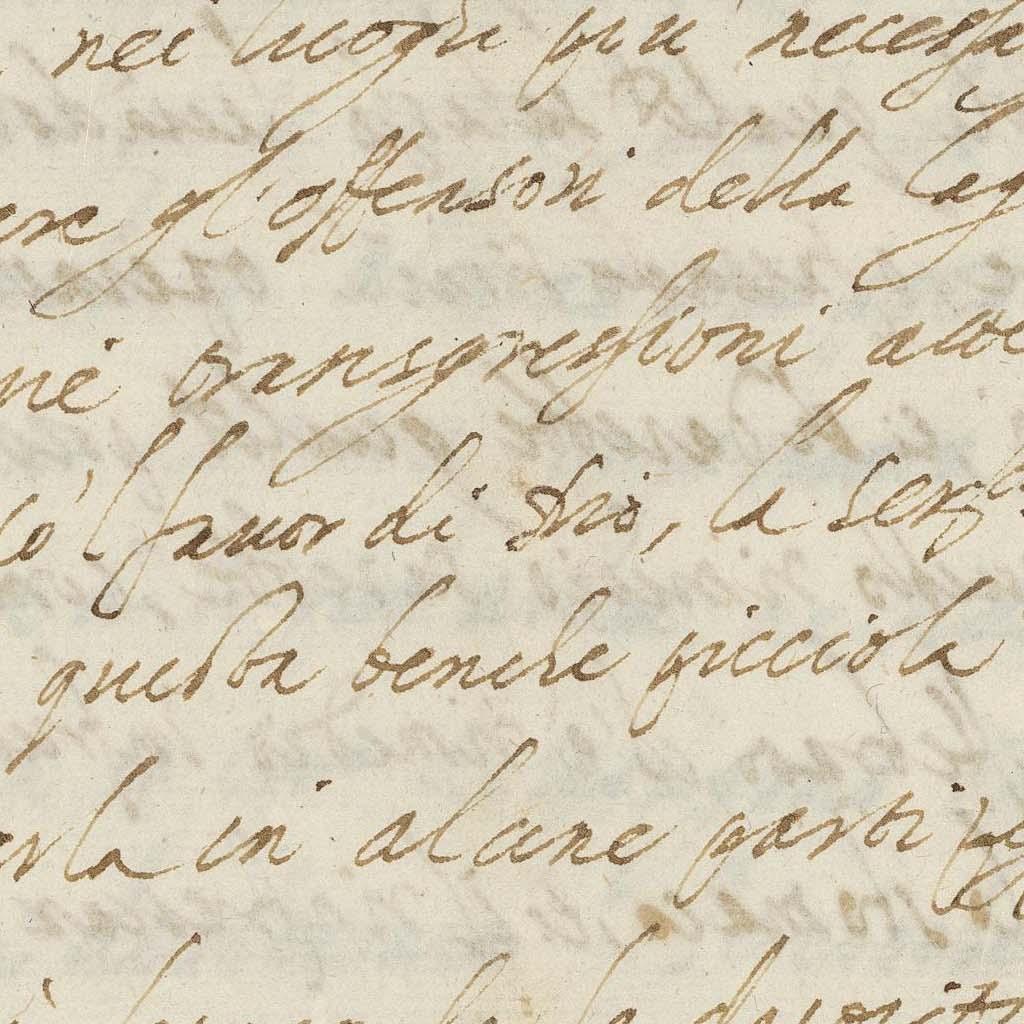 nei luoghi più necessa
ere gl'offensori della lag
nè transgressioni acce
co'l favor di Dio, la ser
questa benche picciola
erla in alcune parti